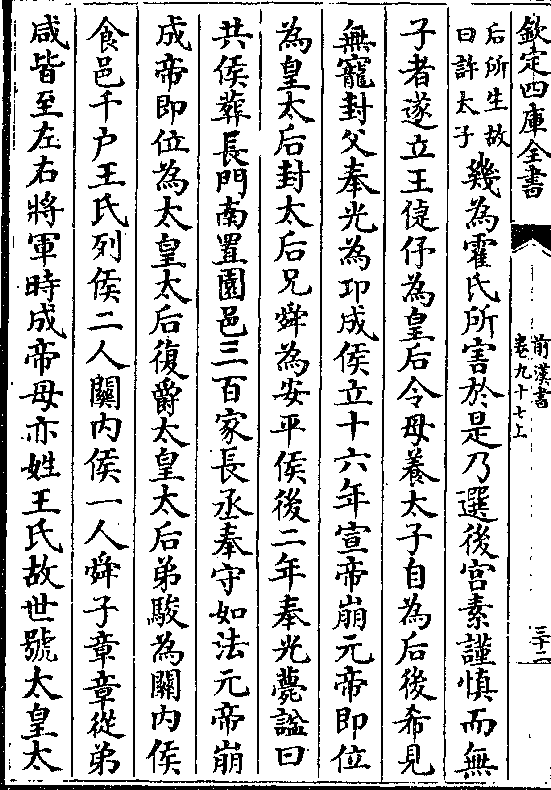 欽定四庫全書
前漢書
卷九十七上
三十二
后所生故
曰許太子
幾為霍氏所害於是乃選後宮素謹慎而無
子者遂立王倢伃為皇后令母養太子自為后後希見
無寵封父奉光為卭成侯立十六年宣帝崩元帝即位
為皇太后封太后兄舜為安平侯後二年奉光薨諡曰
共侯葬長門南置園邑三百家長丞奉守如法元帝崩
成帝即位為太皇太后復爵太皇太后弟駿為關內侯
食邑千户王氏列侯二人關內侯一人舜子章章從弟
咸皆至左右將軍時成帝母亦姓王氏故世號太皇太